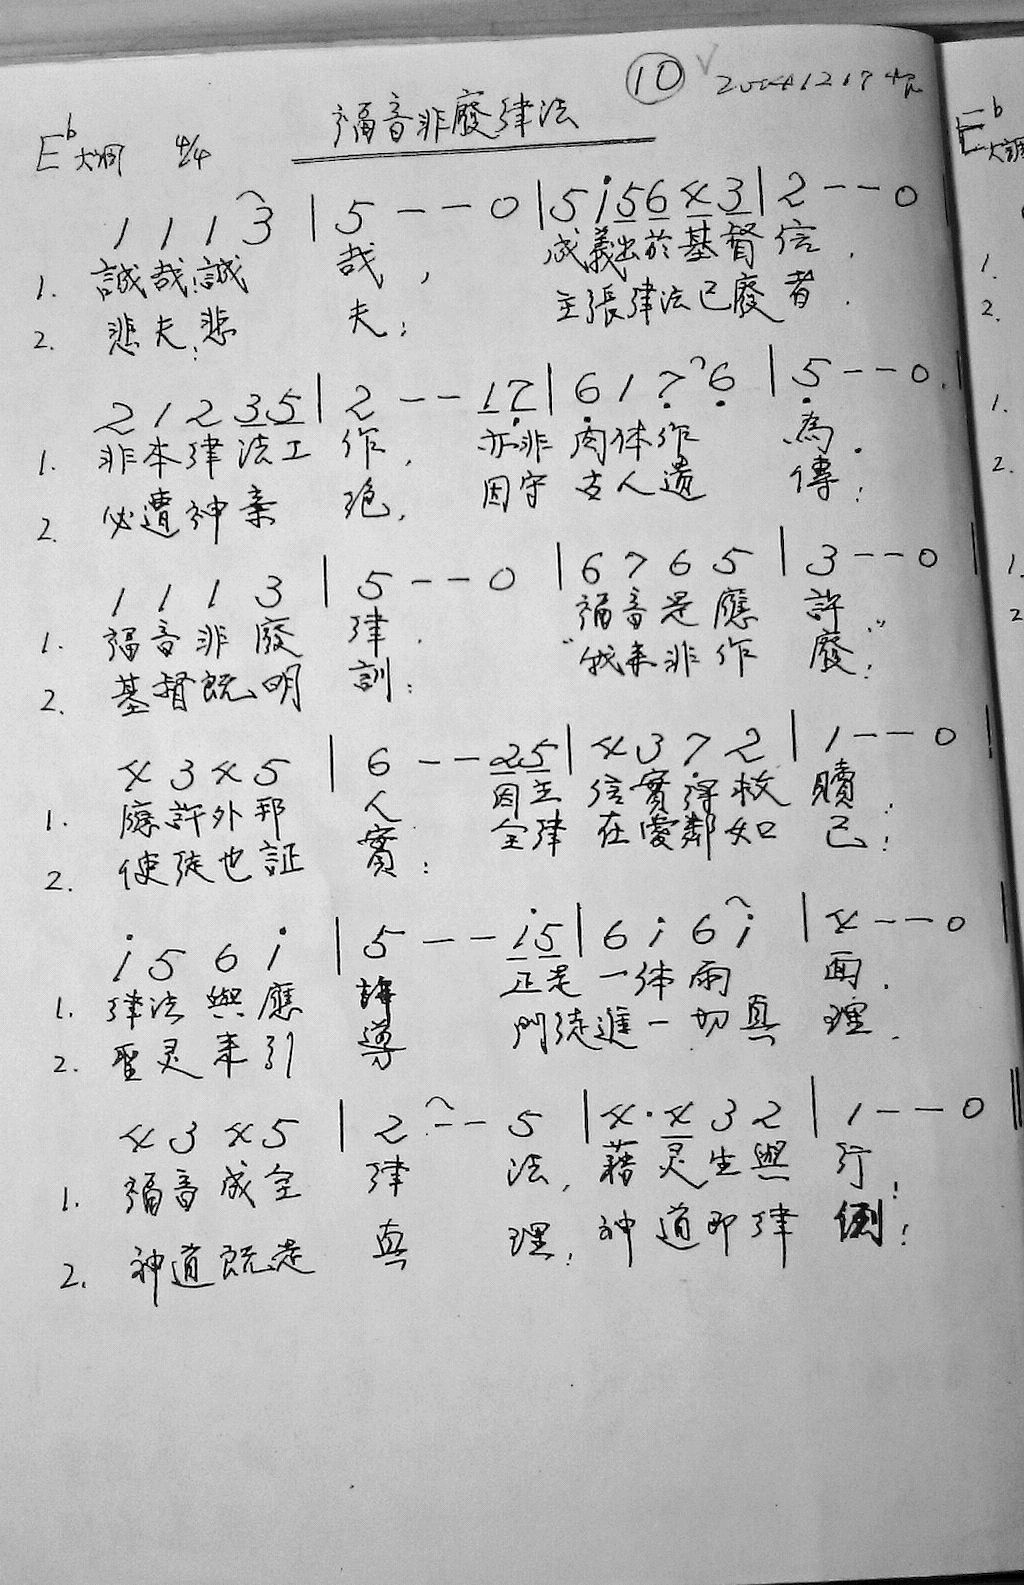 ⑩ √ 20041217
福音非廢律法
E♭大調 4/4 E♭大調
1 1 1 3 | 5 – – 0 | 5 i 5 6 4 3 | 2 – – 0
1. 誠哉!誠 哉, 成義出於基督信, 1.
2. 悲夫!悲 夫; 主張律法已廢者. 2.
2 1 2 3 5 | 2 – – 1 7̣ | 6̣ 1 7̣ 6̣ | 5̣ – – 0 |
1. 非本律法工 作, 亦非肉体作 為. 1.
2. 必遭神棄 絕, 因守古人遺 傳; 2.
1 1 1 3 | 5 – – 0 | 6 7 6 5 | 3 – – 0 |
1. 福音非廢 律. 福音是應 許 1.
2. 基督既明 訓: "我來非作 廢"; 2
4 3 4 5 | 6 – – 2 5 | 4 3 7̣ 2 | 1 – – 0 |
1. 應許外邦 人 因主 信實得救 贖.
2. 使徒也証 實: 全律 在愛鄰如 己;
i 5 6 i | 5 – – i 5 | 6 i 6 i | 4 – – 0 |
1. 律法與應 許 正是一体兩 面.
2. 聖灵來引 導 門徒進一切真 理.
4 3 4 5 | 2 – – 5 | 4 · 4 3 2 | 1 – – 0 ‖
1. 福音成全 律 法, 藉灵生與 行!
2. 神道既是 真 理; 神道即律 例!